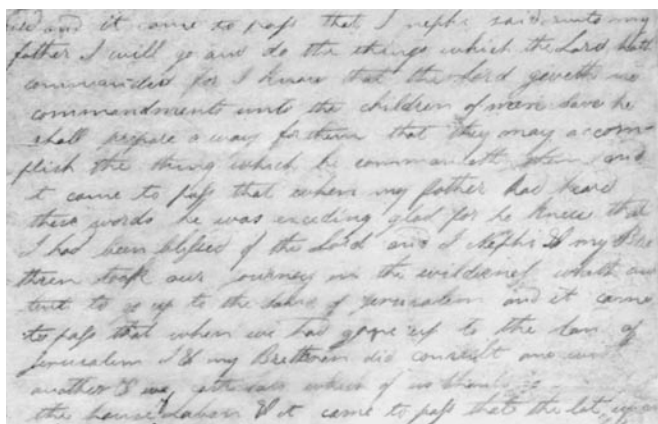 and it came to pass that I nephi said unto my
father I will go and do the things which the Lord hath
commanded for I know that the Lord geveth no
commandments unto the children of men save he
shall prepare a way for them that they may accom=
plish the thing which he commandeth them and
it came to pass that when my father had heard
these words he was exceding glad for he knew that
I had been blessed of the Lord and I Nephi & my Bre
thren took our journey in the wilderness with our
tent to go up to the land of Jerusalem and it came
to pass that when we had gone up to the lan of
Jerusalem I & my Brethren did consult one with
another & we cast lots which of us should
the house Laban & it came to pass that the lot